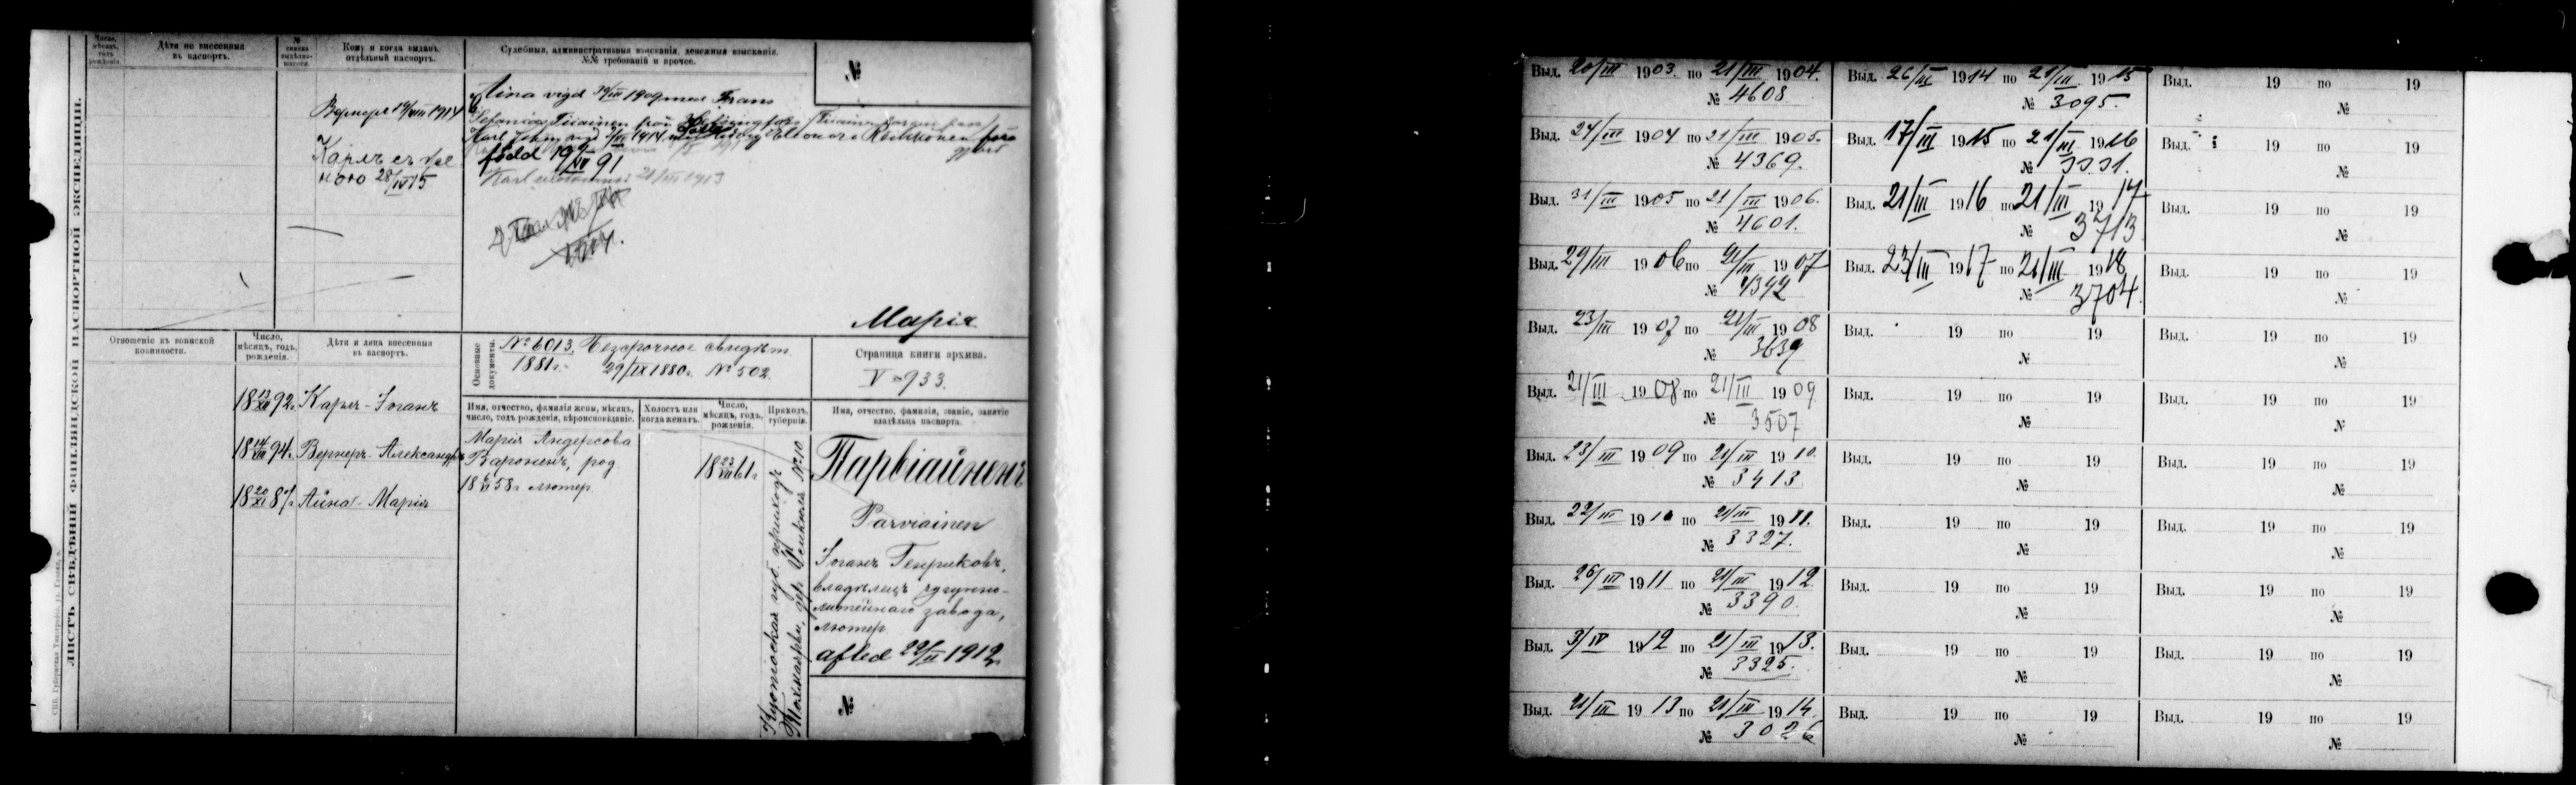 ЛИСТЪ СВѢДѢНІЙ ФИНЛЯНДСКОЙ ПАСПОРТНОЙ ЭКСПЕДИЦІИ.
Число, мѣсяцъ, годъ рожденія.
Дѣти не внесенныя
въ паспортъ.
№
Кому и когда выданъ
отдѣльный паспортъ.
Судебныя, административныя взысканія, денежныя взысканія.
№№ требованій и прочее.
№
Вернеръ 19/VIII 1914
Карлъ съ
28/IV 15
Aina vigd 1909 med Frans
Stefanias Tiicainen från Helsingfors
Karl Johan vigd 1914 med Eleonora
född 19 91
Karl 21/III 1913
Марія
Отношеніе къ воинской
повинности.
Число,
мѣсяцъ, годъ,
рожденія.
Дѣти и лица внесенныя
въ паспортъ.
Основные
документы.
№ 6013. Безсрочное свидѣт.
1881г. 29/IX 1880г. № 502.
Страница книги архива.
V 933.
18 13/XII 92г. Карлъ-Іоганъ
18 14/VIII 94г. Вернеръ-Александръ
18 20/XI 87г. Айна-Марія
Имя, отчество, фамилія жены, мѣсяцъ,
число, годъ рожденія, вѣроисповѣданіе.
Холостъ или
когда женатъ.
Число,
мѣсяцъ, годъ,
рожденія.
Приходъ,
губернія.
Имя, отчество, фамилія, званіе, занятіе
владѣльца паспорта.
Марія Андерсова
Вароненъ, род.
18 58г. лютер.
18 23/VII 61г.
Куопіоская губ. приходъ
№ 10
Парвіайненъ
Parviainen
Іоганъ Генриковъ,
владѣлецъ чугунно-
литейнаго завода,
лютер.
afled 22/II 1912
№
Выд. 20/III 1903. по 21/III 1904.
№ 4608
Выд. 24/III 1904 по 21/III 1905.
№ 4369.
Выд. 31/III 1905 по 21/III 1906.
№ 4601.
Выд. 29/III 1906 по 21/III 1907
№ 4392
Выд. 23/III 1907 по 21/III 1908
№ 3639
Выд. 21/III 1908 по 21/III 1909
№ 3507
Выд. 23/III 1909 по 21/III 1910.
№ 3413
Выд. 22/III 1910 по 21/III 1911.
№ 3327.
Выд. 26/III 1911 по 21/III 1912
№ 3390.
Выд. 3/IV 1912 по 21/III 1913.
№ 3325.
Выд. 21/III 1913 по 21/III 1914
№ 3026
Выд. 26/III 1914 по 21/III 1915
№ 3095.
Выд. 17/III 1915 по 21/III 1916
№ 3331.
Выд. 21/III 1916 по 21/III 1917
№ 3713
Выд. 23/III 1917 по 21/III 1918
№ 3704.
Выд. 19 по 19
№
Выд. 19 по 19
№
Выд. 19 по 19
№
Выд. 19 по 19
№
Выд. 19 по 19
№
Выд. 19 по 19
№
Выд. 19 по 19
№
Выд. 19 по 19
№
Выд. 19 по 19
№
Выд. 19 по 19
№
Выд. 19 по 19
№
Выд. 19 по 19
№
Выд. 19 по 19
№
Выд. 19 по 19
№
Выд. 19 по 19
№
Выд. 19 по 19
№
Выд. 19 по 19
№
Выд. 19 по 19
№